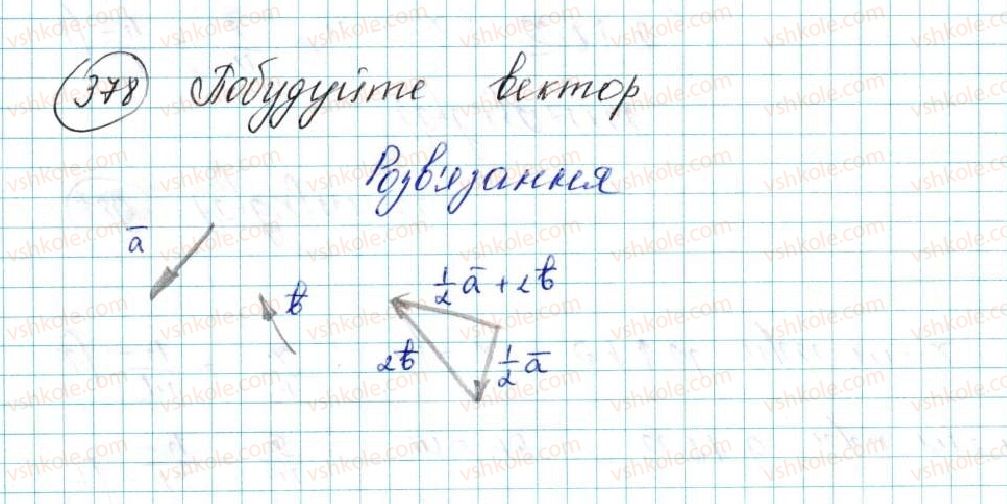 378 Побудуйте вектор
Розв'язання
a̅
b̅
½ a̅ + 2b̅
2b̅
½ a̅
vshkole.com